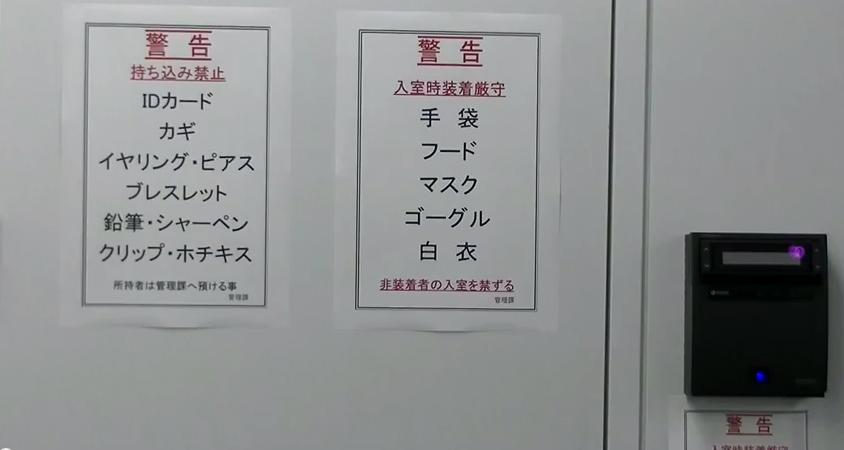 警告
持ち込み禁止
IDカード
カギ
イヤリング・ピアス
ブレスレット
鉛筆・シャーペン
クリップ・ホチキス
所持者は管理課へ預ける事
管理課
警告
入室時装着厳守
手袋
フード
マスク
ゴーグル
白衣
非装着者の入室を禁ずる
管理課
警告
入室時装着厳守